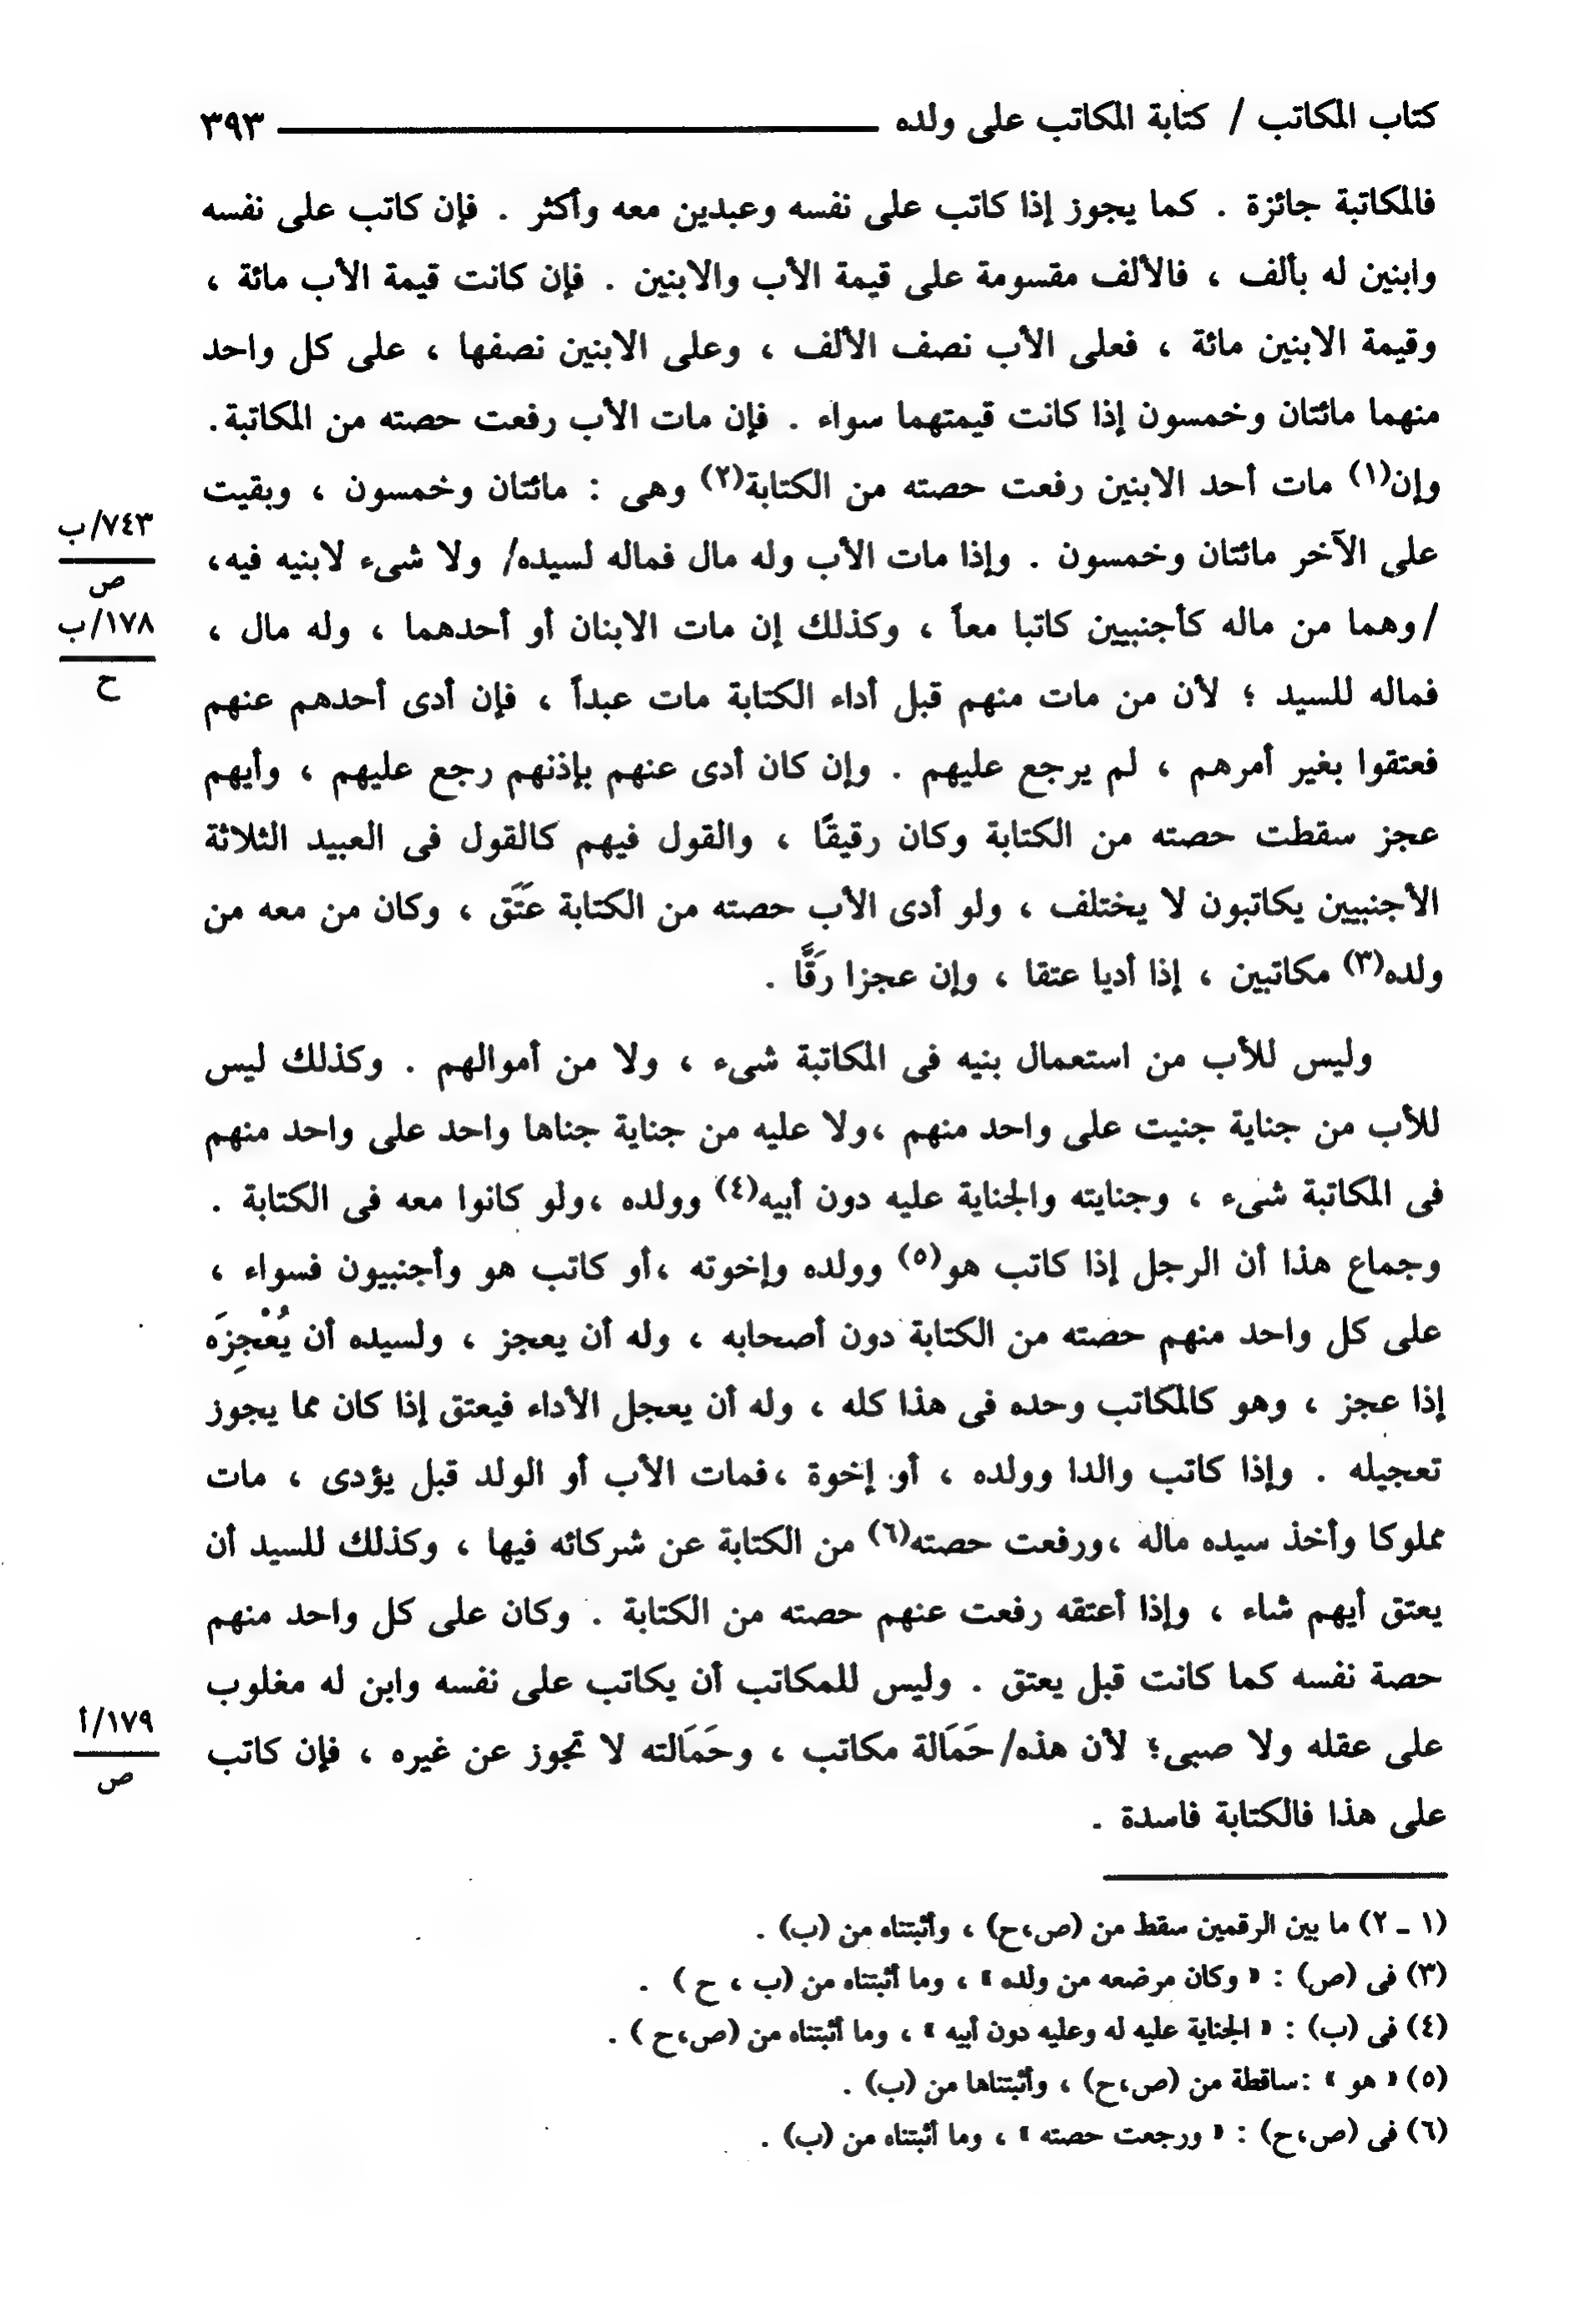 كتاب المكاتب / كتابة المكاتب على ولده ـــــــــــــــــــــــــــــــ ٣٩٣
فالمكاتبة جائزة . كما يجوز إذا كاتب على نفسه وعبدين معه وأكثر . فإن كاتب على نفسه
وابنين له بألف ، فالألف مقسومة على قيمة الأب والابنين . فإن كانت قيمة الأب مائة ،
وقيمة الابنين مائة ، فعلى الأب نصف الألف ، وعلى الابنين نصفها ، على كل واحد
منهما مائتان وخمسون إذا كانت قيمتهما سواء . فإن مات الأب رفعت حصته من المكاتبة.
وإن(١) مات أحد الابنين رفعت حصته من الكتابة(٢) وهى : مائتان وخمسون ، وبقيت
٧٤٣/ب
ص
على الآخر مائتان وخمسون . وإذا مات الأب وله مال فماله لسيده/ ولا شىء لابنيه فيه،
١٧٨/ب
ح
/وهما من ماله كأجنبيين كاتبا معاً ، وكذلك إن مات الابنان أو أحدهما ، وله مال ،
فماله للسيد ؛ لأن من مات منهم قبل أداء الكتابة مات عبداً ، فإن أدى أحدهم عنهم
فعتقوا بغير أمرهم ، لم يرجع عليهم . وإن كان أدى عنهم بإذنهم رجع عليهم ، وأيهم
عجز سقطت حصته من الكتابة وكان رقيقًا ، والقول فيهم كالقول فى العبيد الثلاثة
الأجنبيين يكاتبون لا يختلف ، ولو أدى الأب حصته من الكتابة عَتَق ، وكان من معه من
ولده(٣) مكاتبين ، إذا أديا عتقا ، وإن عجزا رَقَّا .
وليس للأب من استعمال بنيه فى المكاتبة شىء ، ولا من أموالهم . وكذلك ليس
للأب من جناية جنيت على واحد منهم ،ولا عليه من جناية جناها واحد على واحد منهم
فى المكاتبة شىء ، وجنايته والجناية عليه دون أبيه(٤) وولده ،ولو كانوا معه فى الكتابة .
وجماع هذا أن الرجل إذا كاتب هو(٥) وولده وإخوته ،أو كاتب هو وأجنبيون فسواء ،
على كل واحد منهم حصته من الكتابة دون أصحابه ، وله أن يعجز ، ولسيده أن يُعْجِزَه
إذا عجز ، وهو كالمكاتب وحده فى هذا كله ، وله أن يعجل الأداء فيعتق إذا كان مما يجوز
تعجيله . وإذا كاتب والدا وولده ، أو إخوة ،فمات الأب أو الولد قبل يؤدى ، مات
مملوكا وأخذ سيده ماله ،ورفعت حصته(٦) من الكتابة عن شركائه فيها ، وكذلك للسيد أن
يعتق أيهم شاء ، وإذا أعتقه رفعت عنهم حصته من الكتابة . وكان على كل واحد منهم
حصة نفسه كما كانت قبل يعتق . وليس للمكاتب أن يكاتب على نفسه وابن له مغلوب
١٧٩/أ
ص
على عقله ولا صبى؛ لأن هذه/ حَمَالة مكاتب ، وحَمَالته لا تجوز عن غيره ، فإن كاتب
على هذا فالكتابة فاسدة .
(١ ـ ٢) ما بين الرقمين سقط من (ص،ح) ، وأثبتناه من (ب) .
(٣) فى (ص) : « وكان مرضعه من ولده » ، وما أثبتناه من (ب ، ح ) .
(٤) فى (ب) : « الجناية عليه له وعليه دون أبيه » ، وما أثبتناه من (ص،ح ) .
(٥) « هو » :ساقطة من (ص،ح) ، وأثبتناها من (ب) .
(٦) فى (ص،ح) : « ورجعت حصته » ، وما أثبتناه من (ب) .